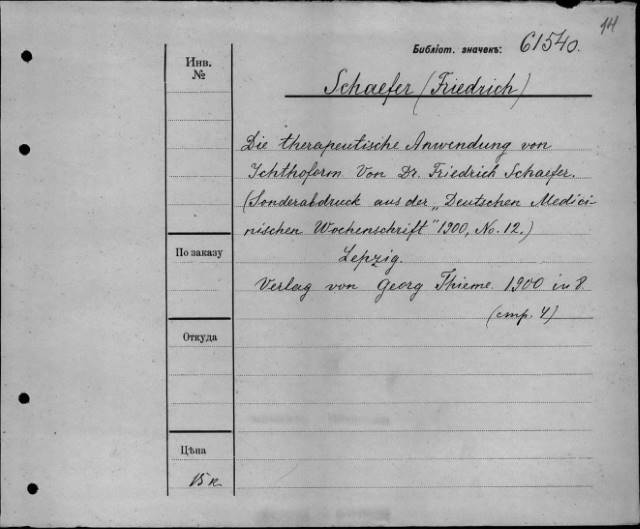 14
Библіот. значекъ: 61540.
Инв.
№
Schaefer (Friedrich)
Die therapeutische Anwendung von
Ichthoform Von Dr. Friedrich Schaefer.
(Sonderabdruck aus der „Deutschen Medici-
nischen Wochenschrift" 1900, No. 12.)
По заказу
Lepzig.
Verlag von Georg Thieme. 1900 in 8.
(стр. 4)
Откуда
Цѣна
15 к